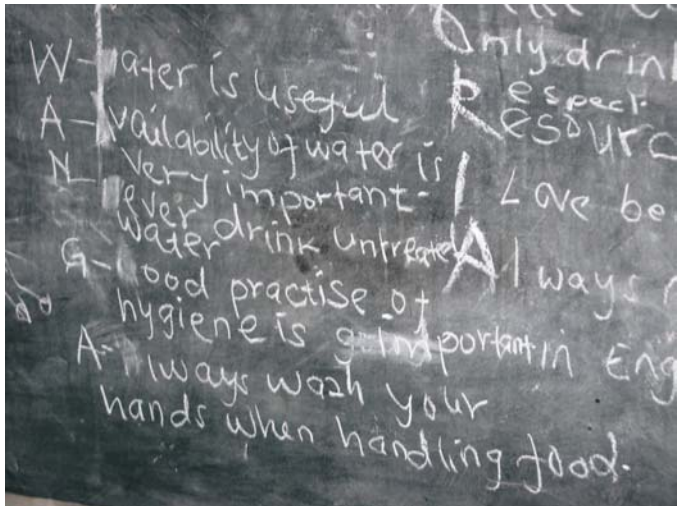 W-ater is useful
A-vailability of water is
very important-
N-ever drink untreated
water
G-ood practise of
hygiene is important in
A-lways wash your
hands when handling food.
Only drin
Respect
Resourc
I Love be
Always
Eng